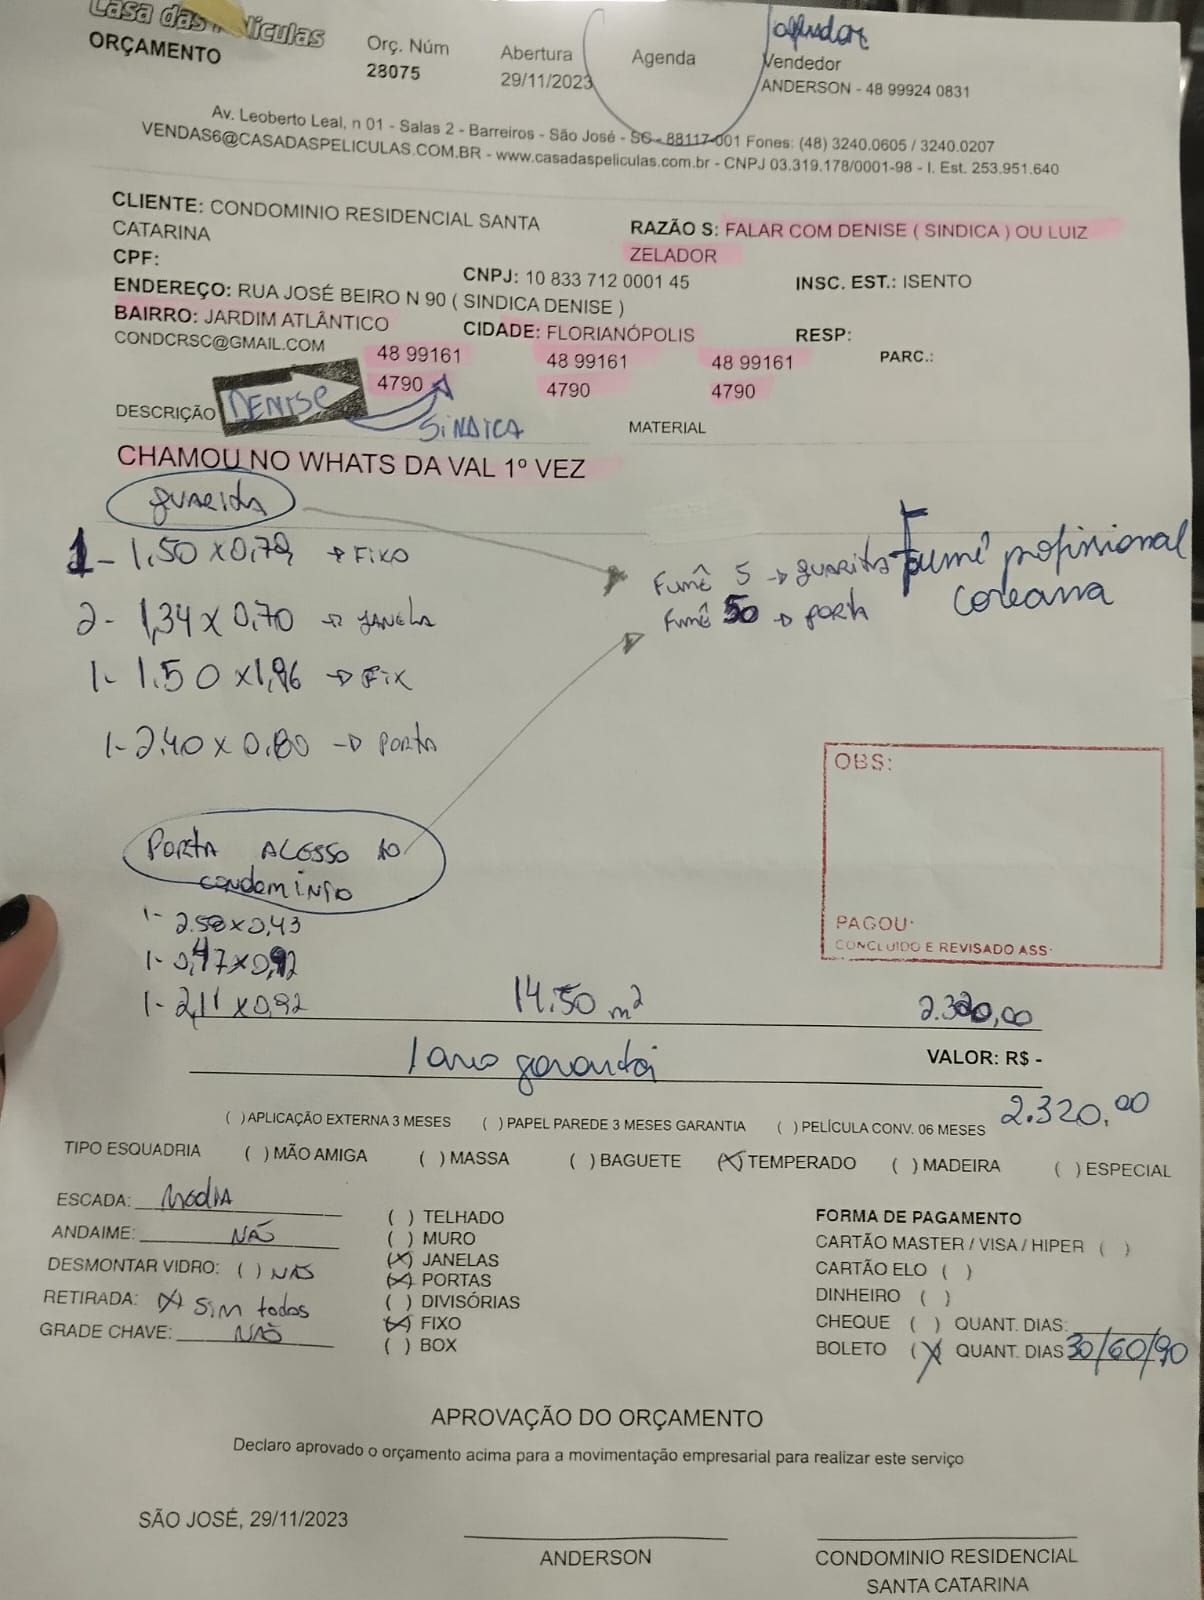 Casa das Películas
ORÇAMENTO
Orç. Núm
28075
Abertura
29/11/2023
Agenda
Vendedor
ANDERSON - 48 99924 0831
Av. Leoberto Leal, n 01 - Salas 2 - Barreiros - São José - SC - 88117-001 Fones: (48) 3240.0605 / 3240.0207
VENDAS6@CASADASPELICULAS.COM.BR - www.casadaspeliculas.com.br - CNPJ 03.319.178/0001-98 - I. Est. 253.951.640
CLIENTE: CONDOMINIO RESIDENCIAL SANTA
CATARINA
RAZÃO S: FALAR COM DENISE ( SINDICA ) OU LUIZ
ZELADOR
CPF:
CNPJ: 10 833 712 0001 45
INSC. EST.: ISENTO
ENDEREÇO: RUA JOSÉ BEIRO N 90 ( SINDICA DENISE )
BAIRRO: JARDIM ATLÂNTICO
CIDADE: FLORIANÓPOLIS
RESP:
CONDCRSC@GMAIL.COM
48 99161
4790
48 99161
4790
48 99161
4790
PARC.:
DENISE
SINDICA
DESCRIÇÃO
MATERIAL
CHAMOU NO WHATS DA VAL 1º VEZ
guarida
1 - 1,50 x 0,79 → FIXO
2 - 1,34 x 0,70 → JANELA
1 - 1.50 x 1,96 → FIX
1 - 2.40 x 0,80 → PORTA
Fumê 5 → guarita
Fumê 50 → porta
fumê profissional
coreana
PORTA ACESSO AO
condomínio
1 - 2.50 x 0,43
1 - 0,47 x 0,92
1 - 2,11 x 0,92
14.50 m²
2.320,00
1 ano garantia
VALOR: R$ -
2.320,00
( ) APLICAÇÃO EXTERNA 3 MESES ( ) PAPEL PAREDE 3 MESES GARANTIA ( ) PELÍCULA CONV. 06 MESES
TIPO ESQUADRIA ( ) MÃO AMIGA ( ) MASSA ( ) BAGUETE (X) TEMPERADO ( ) MADEIRA ( ) ESPECIAL
ESCADA: MÉDIA
ANDAIME: NÃO
DESMONTAR VIDRO: ( ) NÃO
RETIRADA: (X) Sim todos
GRADE CHAVE: NÃO
( ) TELHADO
( ) MURO
(X) JANELAS
(X) PORTAS
( ) DIVISÓRIAS
(X) FIXO
( ) BOX
FORMA DE PAGAMENTO
CARTÃO MASTER / VISA / HIPER ( )
CARTÃO ELO ( )
DINHEIRO ( )
CHEQUE ( ) QUANT. DIAS:
BOLETO (X) QUANT. DIAS 30/60/90
OBS:
PAGOU:
CONCLUIDO E REVISADO ASS.
APROVAÇÃO DO ORÇAMENTO
Declaro aprovado o orçamento acima para a movimentação empresarial para realizar este serviço
SÃO JOSÉ, 29/11/2023
ANDERSON
CONDOMINIO RESIDENCIAL
SANTA CATARINA